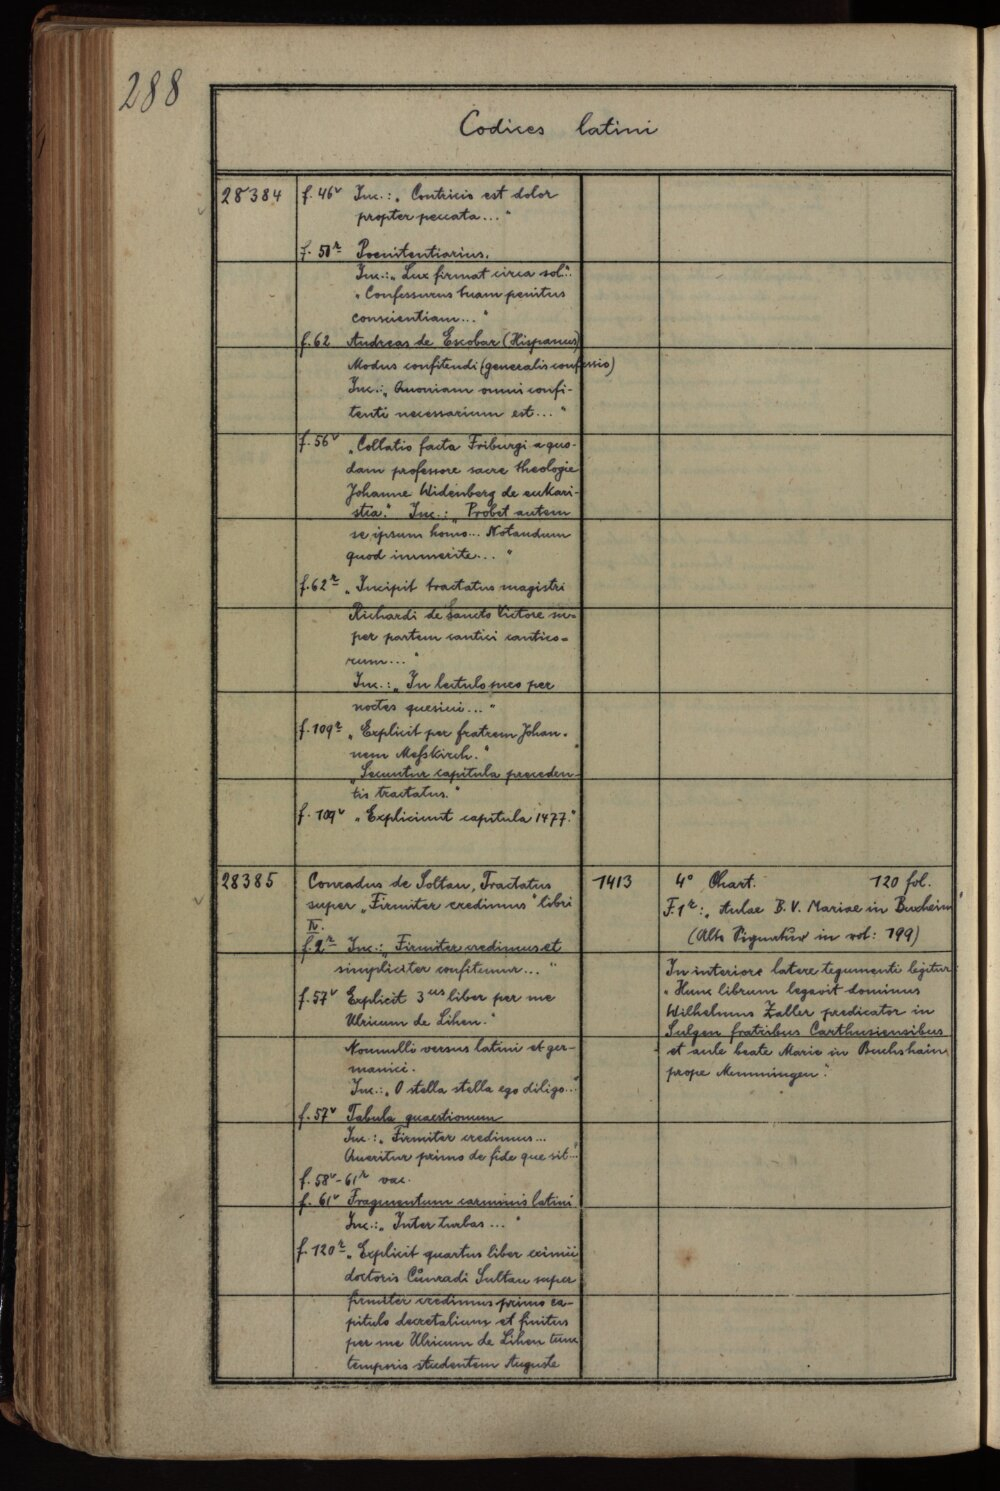 288
Codices latini
28384
f. 46v Inc.: „Contricio est dolor
propter peccata..."
f. 50r Poenitentiarius.
Inc.: „Lux firmat circa sol."
„Confessurus tuam penitus
conscientiam..."
f. 62 Andreas de Escobar (Hispanus)
Modus confitendi (generalis confessio)
Inc.: „Quoniam omni confi-
tenti necessarium est..."
f. 56v „Collatio facta Friburgi a quo-
dam professore sacre theologie
Johanne Widenberg de eukari-
stia." Inc.: „Probet autem
se ipsum homo... Notandum
quod immerite..."
f. 62r „Incipit tractatus magistri
Richardi de Sancto Victore su-
per partem cantici cantico-
rum..."
Inc.: „In lectulo meo per
noctes quesivi..."
f. 109r „Explicit per fratrem Johan-
nem Meßkirch."
„Secuntur capitula preceden-
tis tractatus."
f. 109v „Expliciunt capitula 1477."
28385
Conradus de Soltau, Tractatus
super „Firmiter credimus" libri
IV.
f. 2r Inc.: „Firmiter credimus et
simpliciter confitemur..."
f. 57v Explicit 3us liber per me
Ulricum de Lihen."
Nonnulli versus latini et ger-
manici.
Inc.: „O stella stella ego diligo..."
f. 57v Tabula quaestionum
Inc.: „Firmiter credimus...
Queritur primo de fide que sit..."
f. 58v-61r vac.
f. 61v Fragmentum carminis latini
Inc.: „Inter turbas..."
f. 120r „Explicit quartus liber eximii
doctoris Cůnradi Sultau super
firmiter credimus primo ca-
pitulo decretalium et finitus
per me Ulricum de Lihen tunc
temporis studentem Auguste
1413
4° Chart. 120 fol.
F. 1r: „Aulae B. V. Mariae in Buxheim"
(Alte Signatur in vol: 199)
In interiore latere tegumenti legitur:
„Hunc librum legavit dominus
Wilhelmus Zaller predicator in
Sulgen fratribus Carthusiensibus
et aule beate Marie in Buchshain
prope Memmingen."